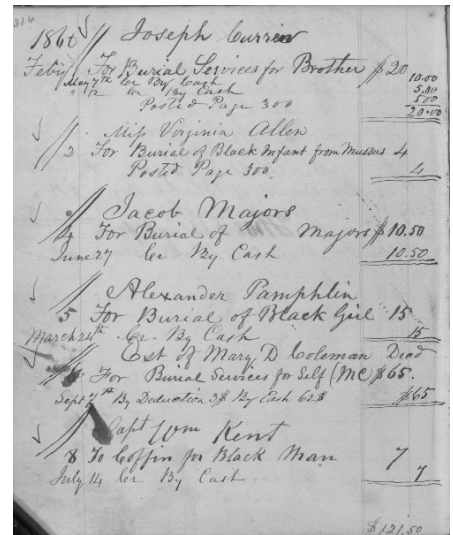 316
1860 Joseph Currin
Feby 1 For Burial Services for Brother $20
May 7th Cr By Cash 10.00
" 12 Cr By Cash 5.00
5.00
Posted Page 300 20.00
Miss Virginia Allen
2 For Burial of Black Infant from 4
Posted Page 300 4
Jacob Majors
4 For Burial of Majors $10.50
June 27 Cr By Cash 10.50
Alexander Pamphlin
5 For Burial of Black Girl 15
March 24th Cr By Cash 15
Est of Mary D Coleman Dead
For Burial Services for Self (MC) $65.
Sept 7th By Deduction 3$ By Cash 62$ $65
Capt Wm Kent
8 To Coffin for Black Man 7
July 14 Cr By Cash 7
$121.50